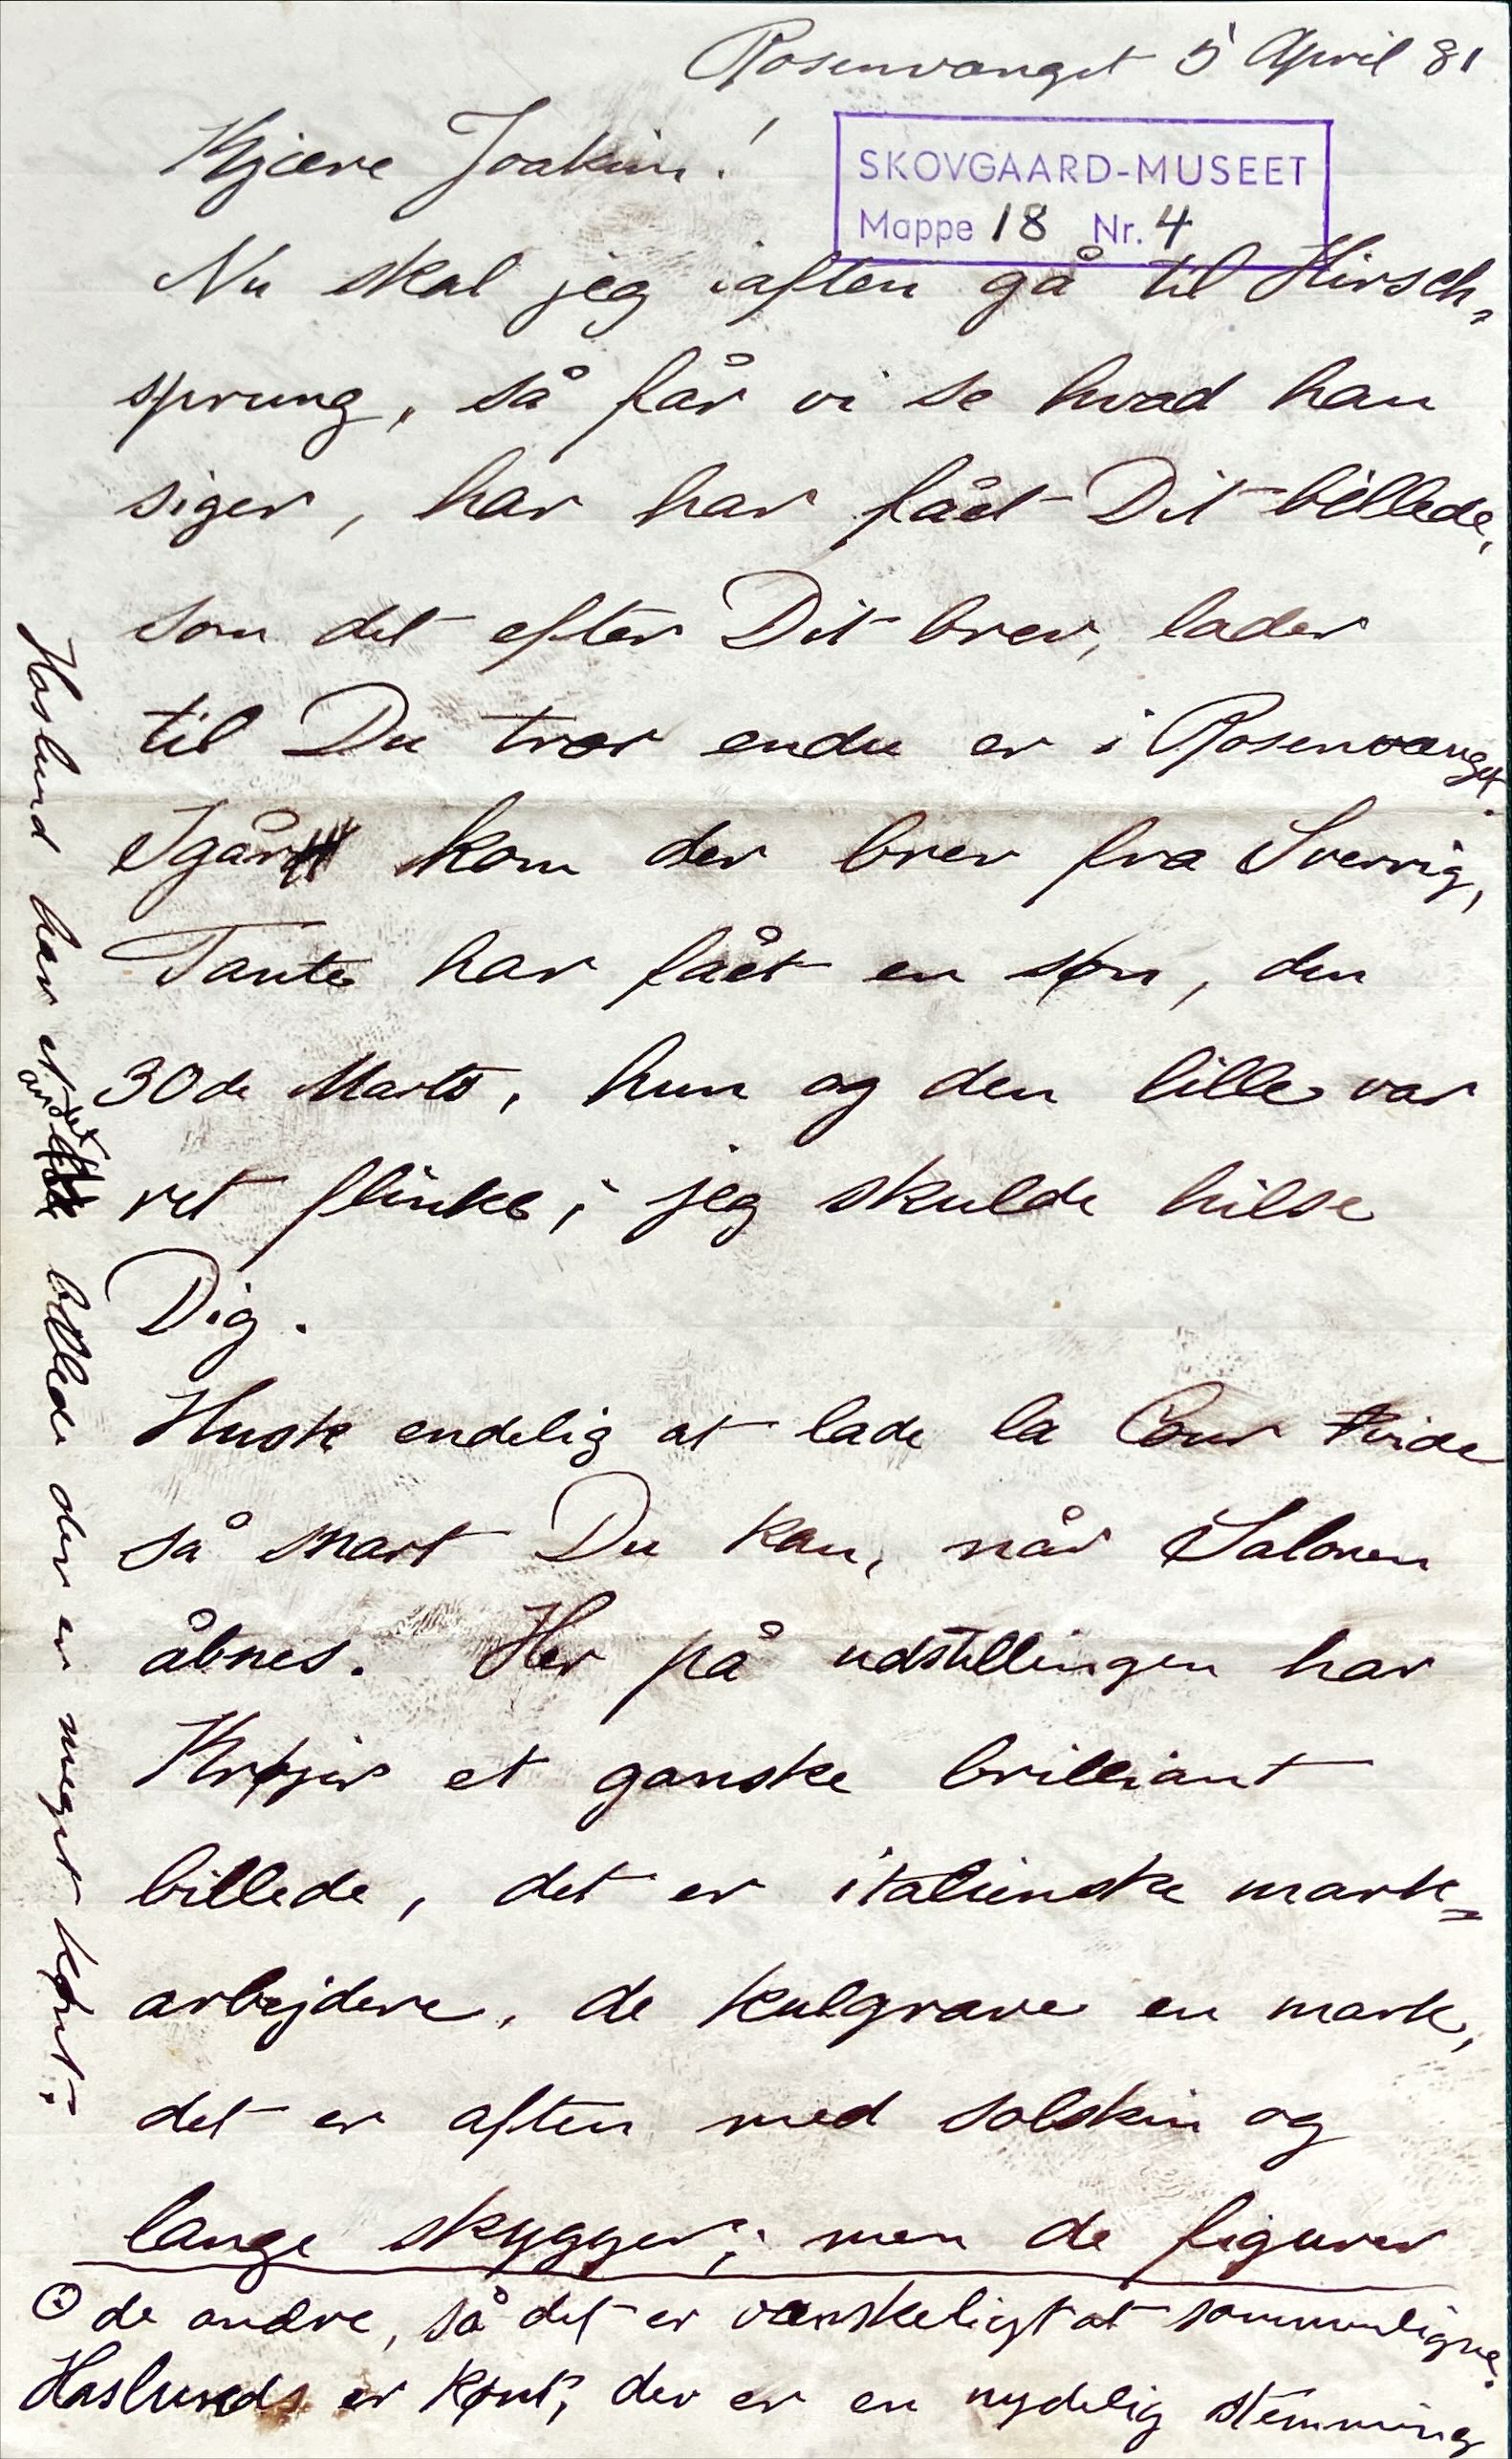 Rosenvænget 5 April 81
Kjære Joakim!
SKOVGAARD-MUSEET
Mappe 18 Nr. 4
Nu skal jeg iaften gå til Hirsch=
sprung, så får vi se hvad han
siger, har har fået Dit billede,
som det efter Dit brev, lader
til Du tror endu er i Rosenvænget.
Igår kom der brev fra Sverrig,
Tante har fået en søn, den
30de Marts, hun og den lille var
ret flinke; jeg skulde hilse
Dig.
Husk endelig at lade la Cour vide
så snart Du kan, når Salonen
åbnes. Her på udstillingen har
Krøjer et ganske brilliant
billede, det er italienske mark=
arbejdere, de kulgrave en mark,
det er aften med solskin og
lange skygger; men de figurer
de andre, så det er vanskeligt at sammenligne.
Haslunds er kønt, der er en nydelig stemning
Haslund har et andet billede der er meget kønt.